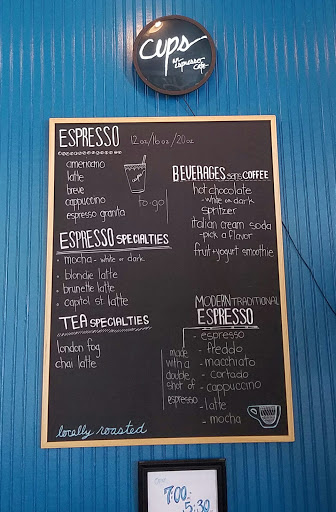 cups
an espresso
cafe
ESPRESSO 12oz/16oz/20oz
americano
latte
breve
cappuccino
espresso granita
to-go
ESPRESSO SPECIALTIES
• mocha - white or dark
• blondie latte
• brunette latte
• capitol st latte
TEA SPECIALTIES
london fog
chai latte
locally roasted
BEVERAGES sans COFFEE
hot chocolate
- white or dark
spritzer
italian cream soda
- pick a flavor
fruit + yogurt smoothie
MODERN TRADITIONAL
ESPRESSO
made
with a
double
shot of
espresso
- espresso
- freddo
- macchiato
- cortado
- cappuccino
- latte
- mocha
7:00-
5:30